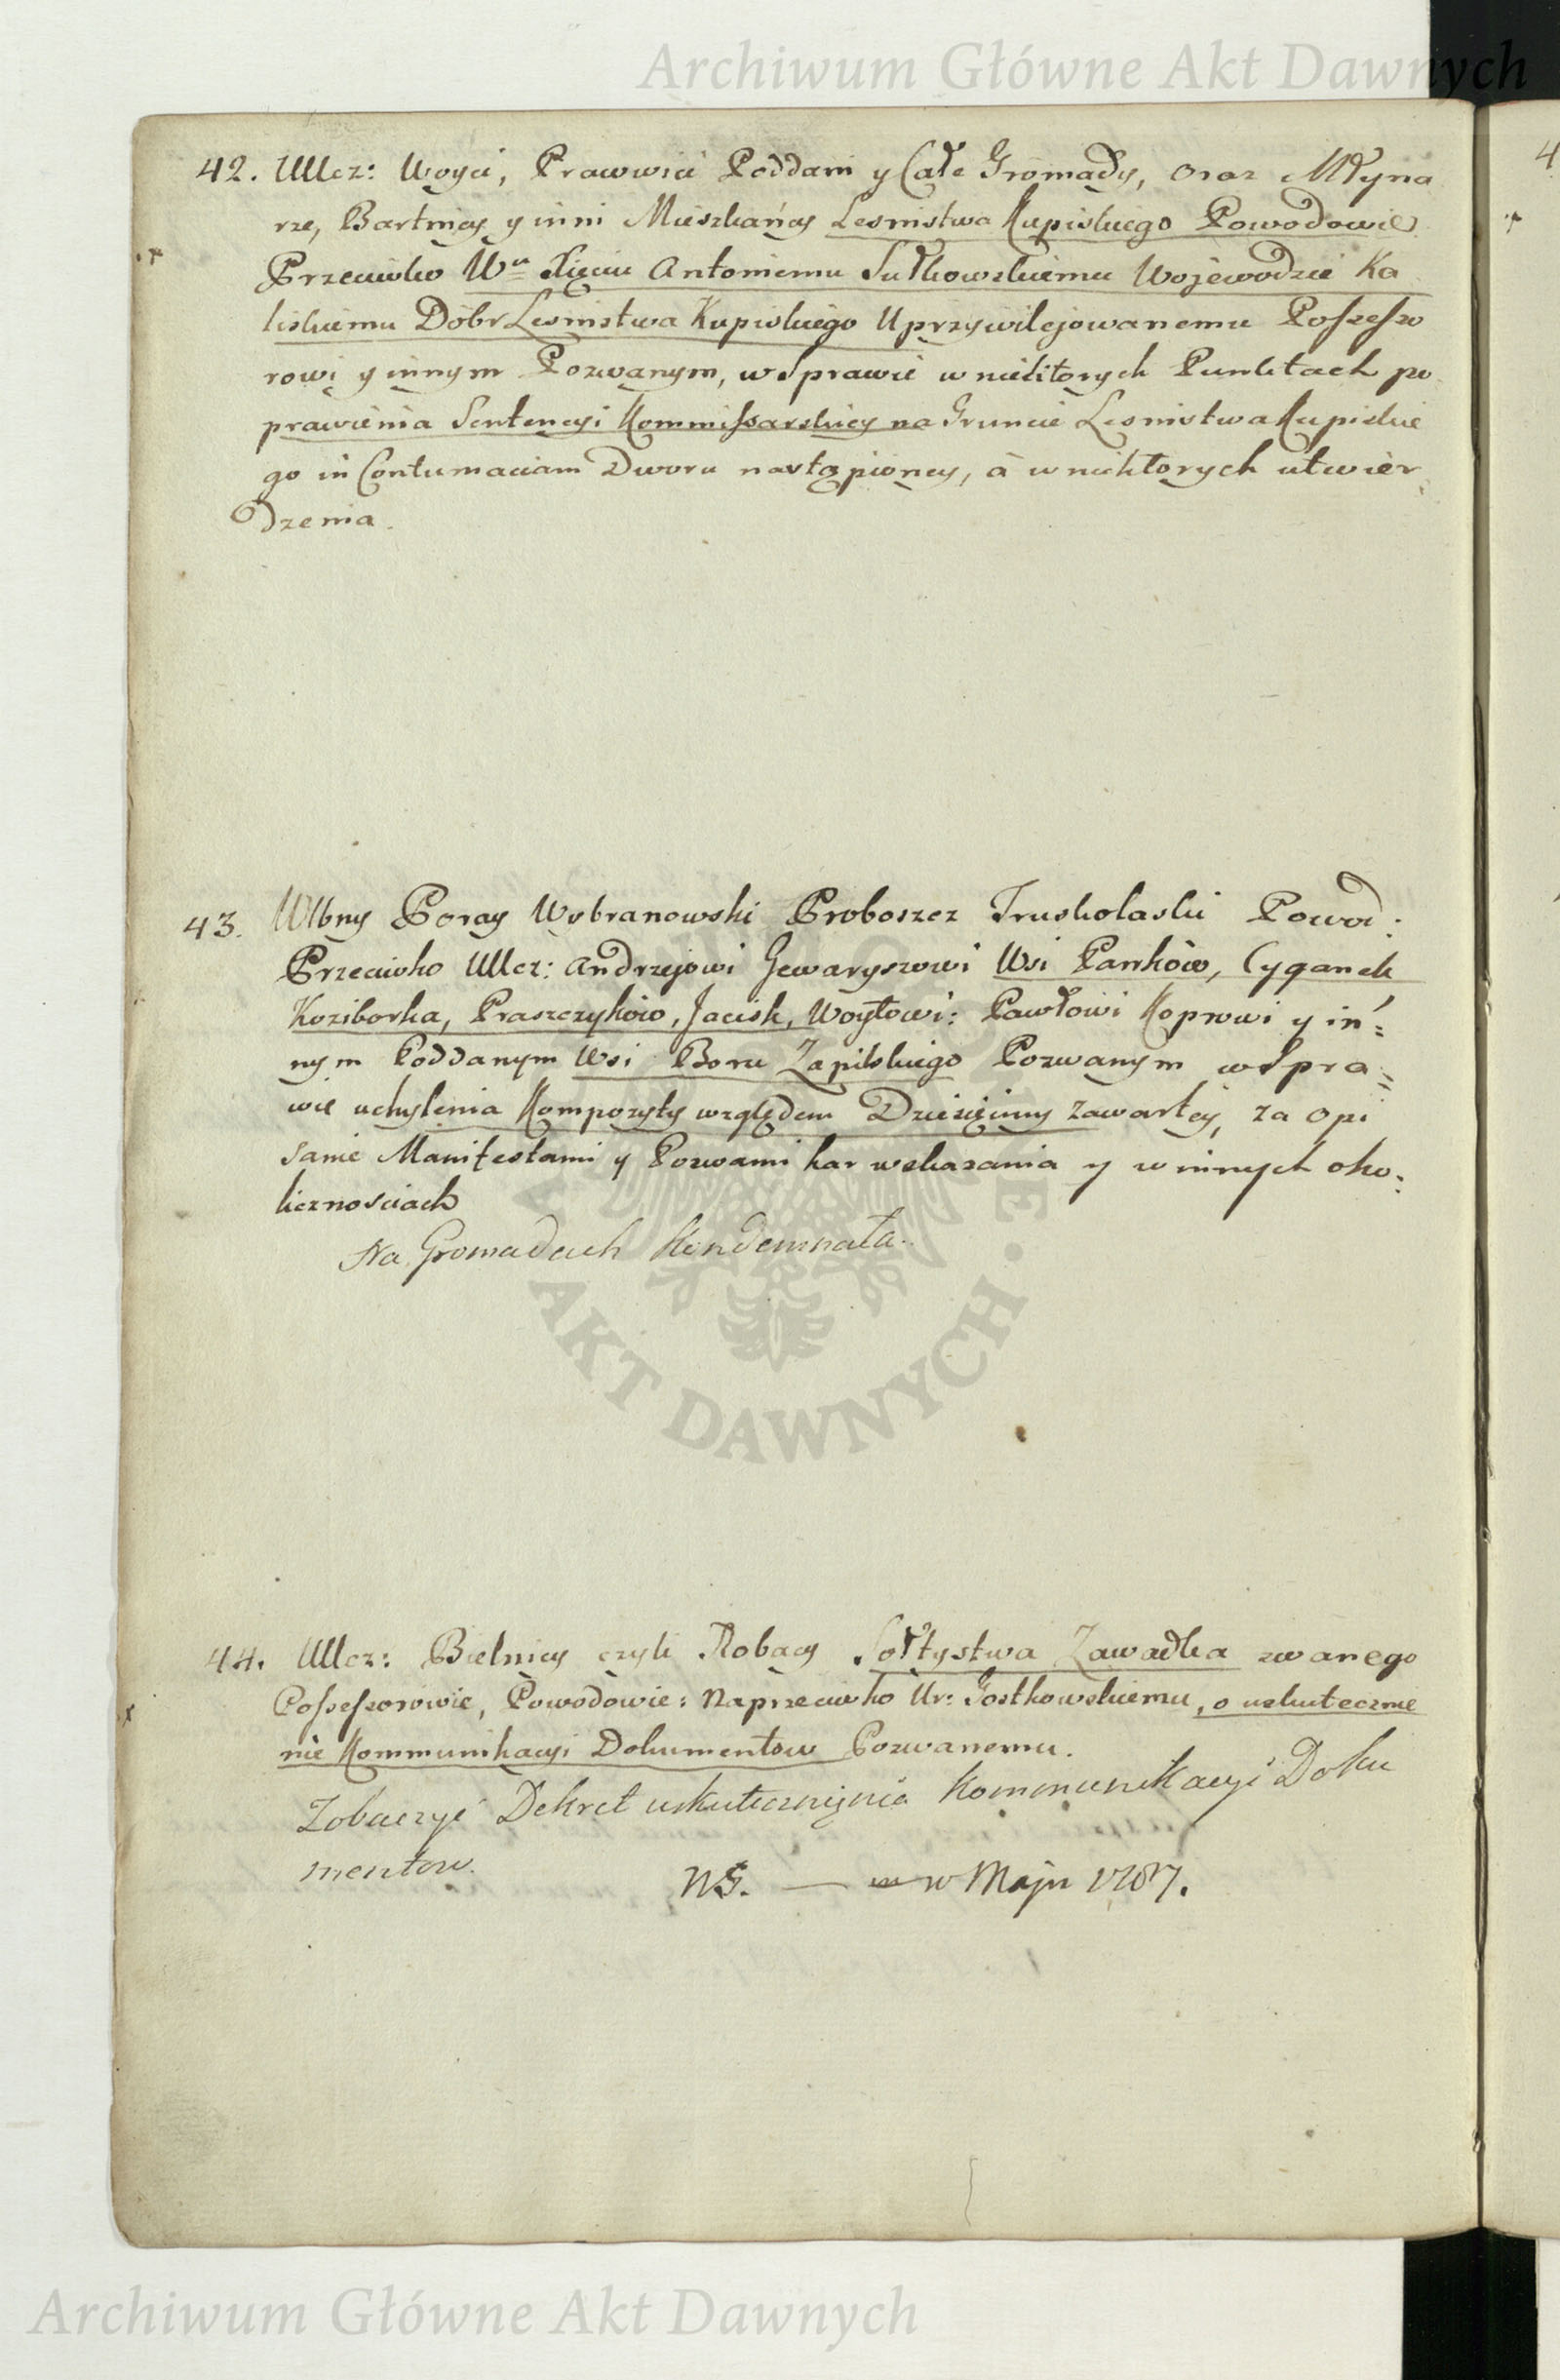 Archiwum Główne Akt Dawnych
42. UUcz: Woyci, Prawwici Poddani y Całe Gromady, oraz Młyna
rze, Bartnicy y inni Mieszkańcy Lesnistwa Kupiskiego Powodowie
Przeciwko Wu Xięciu Antoniemu Sułkowskiemu Wojewodzie Ka
liskiemu Dobr Lesnistwa Kupiskiego Uprzywilejowanemu Possesso
rowi y innym Pozwanym, w Sprawie w niektorych Punktach po
prawienia Sentencyi Kommissarskiey na Gruncie Lesnistwa Kupiskie
go in Contumaciam Dworu nastąpioney, à w niektorych utwier
dzenia.
43. Wlbny Poray Wybranowski Proboszcz Truskolaski Powod:
Przeciwko UUcz: Andrzejowi Gewaryszowi Wsi Panków, Cyganek
Koziborka, Praszczyków, Jacisk, Woytowi: Pawłowi Koprowi y in=
nym Poddanym Wsi Boru Zapilskiego Pozwanym w Spra=
wie uchylenia Kompozyty względem Dziesięciny zawartey, za opi
sanie Manifestami y Pozwami kar wskazania y w innych oko=
licznosciach
Na Gromadach Kondemnata.
44. UUcz: Bielnicy czyli Robacy Sołtystwa Zawadka zwanego
Possessorowie, Powodowie: Naprzeciwko Ur: Gostkowskiemu, o uskutecznie
nie Kommunikacyi Dokumentow Pozwanemu.
Zobaczyć Dekret uskutecznienia Kommunikacyi Doku
mentow.
NS. — w Maju 1787.
AKT DAWNYCH
Archiwum Główne Akt Dawnych